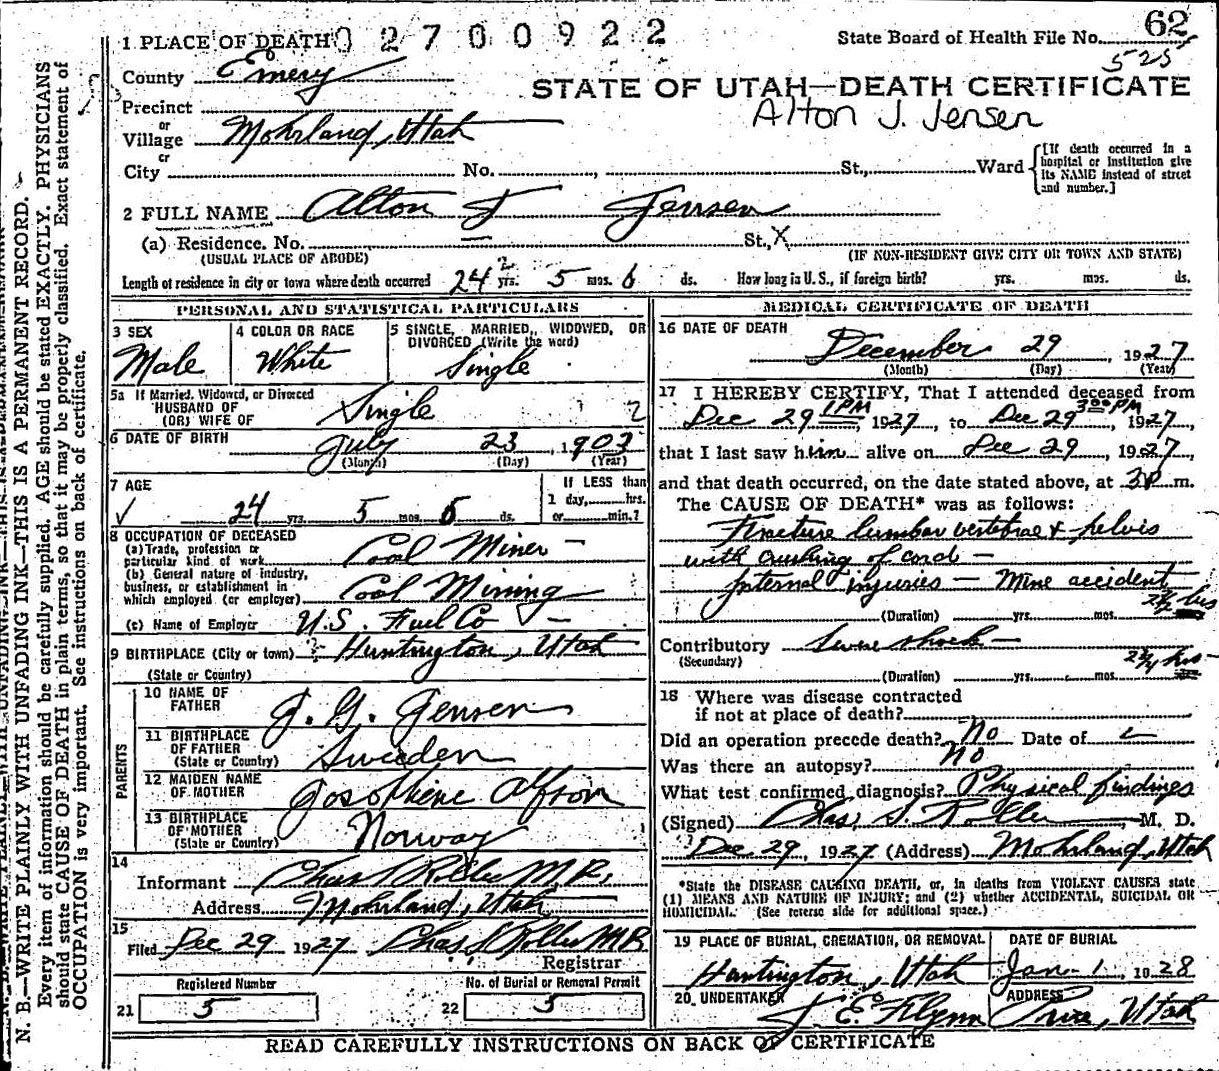 1 PLACE OF DEATH 0 2 7 0 0 9 2 2
State Board of Health File No. 62
525
County Emery
STATE OF UTAH—DEATH CERTIFICATE
Alton J. Jensen
Precinct
or
Village Mohrland, Utah
or
City No. , St., Ward
[If death occurred in a hospital or institution give its NAME instead of street and number.]
2 FULL NAME Alton J Jensen
(a) Residence. No. St., X
(USUAL PLACE OF ABODE) (IF NON-RESIDENT GIVE CITY OR TOWN AND STATE)
Length of residence in city or town where death occurred 24 yrs. 5 mos. 6 ds. How long in U.S., if foreign birth? yrs. mos. ds.
PERSONAL AND STATISTICAL PARTICULARS
3 SEX
Male
4 COLOR OR RACE
White
5 SINGLE, MARRIED, WIDOWED, OR
DIVORCED (Write the word)
Single
5a If Married, Widowed, or Divorced
HUSBAND OF
(OR) WIFE OF Single
6 DATE OF BIRTH July 23, 1903
(Month) (Day) (Year)
7 AGE
24 yrs. 5 mos. 6 ds.
If LESS than
1 day, hrs.
or min.?
8 OCCUPATION OF DECEASED
(a) Trade, profession or
particular kind of work Coal Miner
(b) General nature of industry,
business, or establishment in
which employed (or employer) Coal Mining
(c) Name of Employer U.S. Fuel Co
9 BIRTHPLACE (City or town) Huntington, Utah
(State or Country)
PARENTS
10 NAME OF
FATHER J. G. Jensen
11 BIRTHPLACE
OF FATHER
(State or Country) Sweeden
12 MAIDEN NAME
OF MOTHER Josephine
13 BIRTHPLACE
OF MOTHER
(State or Country) Norway
14
Informant Chas S Roller M.D.
Address Mohrland, Utah
15
Filed Dec 29 1927 Chas S Roller M.D.
Registrar
Registered Number
21 5
No. of Burial or Removal Permit
22 5
MEDICAL CERTIFICATE OF DEATH
16 DATE OF DEATH
December 29, 1927
(Month) (Day) (Year)
17 I HEREBY CERTIFY, That I attended deceased from
Dec 29 1 PM, 1927, to Dec 29 3:00 PM, 1927,
that I last saw him alive on Dec 29, 1927,
and that death occurred, on the date stated above, at 3 P m.
The CAUSE OF DEATH* was as follows:
Fracture lumbar vertebrae & pelvis
with crushing of cord —
Internal injuries — Mine accident
(Duration) yrs. mos. 2 1/2 hrs
Contributory Severe shock —
(Secondary)
(Duration) yrs. mos. 2 1/4 hrs
18 Where was disease contracted
if not at place of death?
Did an operation precede death? No Date of
Was there an autopsy? No
What test confirmed diagnosis? Physical findings
(Signed) Chas. S. Roller M. D.
Dec 29, 1927 (Address) Mohrland, Utah
*State the DISEASE CAUSING DEATH, or, in deaths from VIOLENT CAUSES state
(1) MEANS AND NATURE OF INJURY; and (2) whether ACCIDENTAL, SUICIDAL OR
HOMICIDAL. (See reverse side for additional space.)
19 PLACE OF BURIAL, CREMATION, OR REMOVAL
Huntington, Utah
DATE OF BURIAL
Jan 1, 1928
20. UNDERTAKER
J. E. Flynn
ADDRESS
Price, Utah
READ CAREFULLY INSTRUCTIONS ON BACK OF CERTIFICATE
N. B.—WRITE PLAINLY WITH UNFADING INK—THIS IS A PERMANENT RECORD.
Every item of information should be carefully supplied. AGE should be stated EXACTLY. PHYSICIANS
should state CAUSE OF DEATH in plain terms, so that it may be properly classified. Exact statement of
OCCUPATION is very important. See instructions on back of certificate.